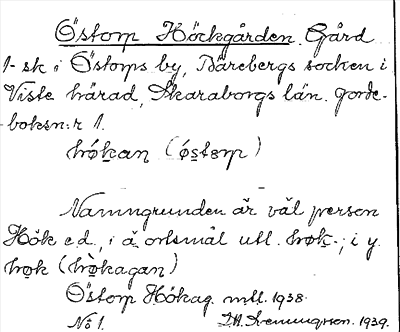 Östorp Höckgården. Gård
1 sk i Östorps by, Bärebergs socken i
Viste härad, Skaraborgs län. Jorde-
boksn:r 1.
hø̀kan (østorp)
Namngrunden är väl person
Hök e.d., i ä. ortsmål utt. høk-; i y.
høk (hø̀kagan)
Östorp Hökag. mtl. 1938.
No 1. 1939.